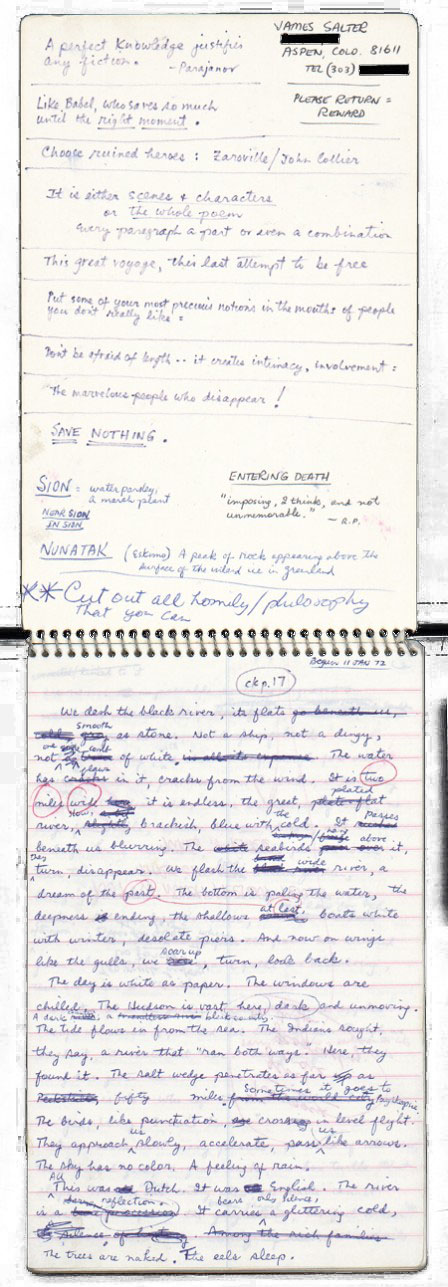 JAMES SALTER
ASPEN, COLO. 81611
TEL (303)
PLEASE RETURN =
REWARD
A perfect Knowledge justifies
any fiction.
- Parajanov
Like, Babel, who saves so much
until the right moment.
Choose ruined heroes : Zaroville/John Collier
It is either scenes & characters
or the whole poem
Every paragraph a part or even a combination
This great voyage, this last attempt to be free
Put some of your most precious notions in the mouths of people
you don't really like :
Don't be afraid of length .. it creates intimacy, involvement :
"The marvelous people who disappear !
SAVE NOTHING.
SION = water parsley,
a marsh plant
NEAR SION
IN SION
ENTERING DEATH
"imposing, I think, and not
unmemorable."
- R.P.
NUNATAK (Eskimo) A peak of rock appearing above the
surface of the inland ice in greenland
** Cut out all homely/philosophy
That you can
Begun 11 JAN 72
ck p. 17
We dash the black river, its flats go beneath us,
smooth
as stone. Not a ship, not a dingy,
not of white. The water
has in it, cracks from the wind. It is two
miles wide it is endless, the great, flat
plated
river, brackish, blue with cold. It
the passes
beneath us blurring. The seabirds above it,
they
turn, disappear. We flash the wide river, a
dream of the past. The bottom is paling the water, the
deepness ending, the shallows at last. boats white
with winter, desolate piers. And now on wings
like the gulls, we soar up, turn, look back.
The day is white as paper. The windows are
chilled. The Hudson is vast here, dark and unmoving.
The tide flows in from the sea. The Indians sought,
they say, a river that "ran both ways". Here, they
found it. The salt wedge penetrates as far as
fifty miles Sometimes it goes to
Poughkeepsie.
The birds, like punctuation, cross in level flight.
us us
They approach slowly, accelerate, pass like arrows.
The sky has no color. A feeling of rain.
All
This was Dutch. It was English. The river
is a reflection. It carries a glittering cold,
bears
Among the rich families
The trees are naked. The eels sleep.